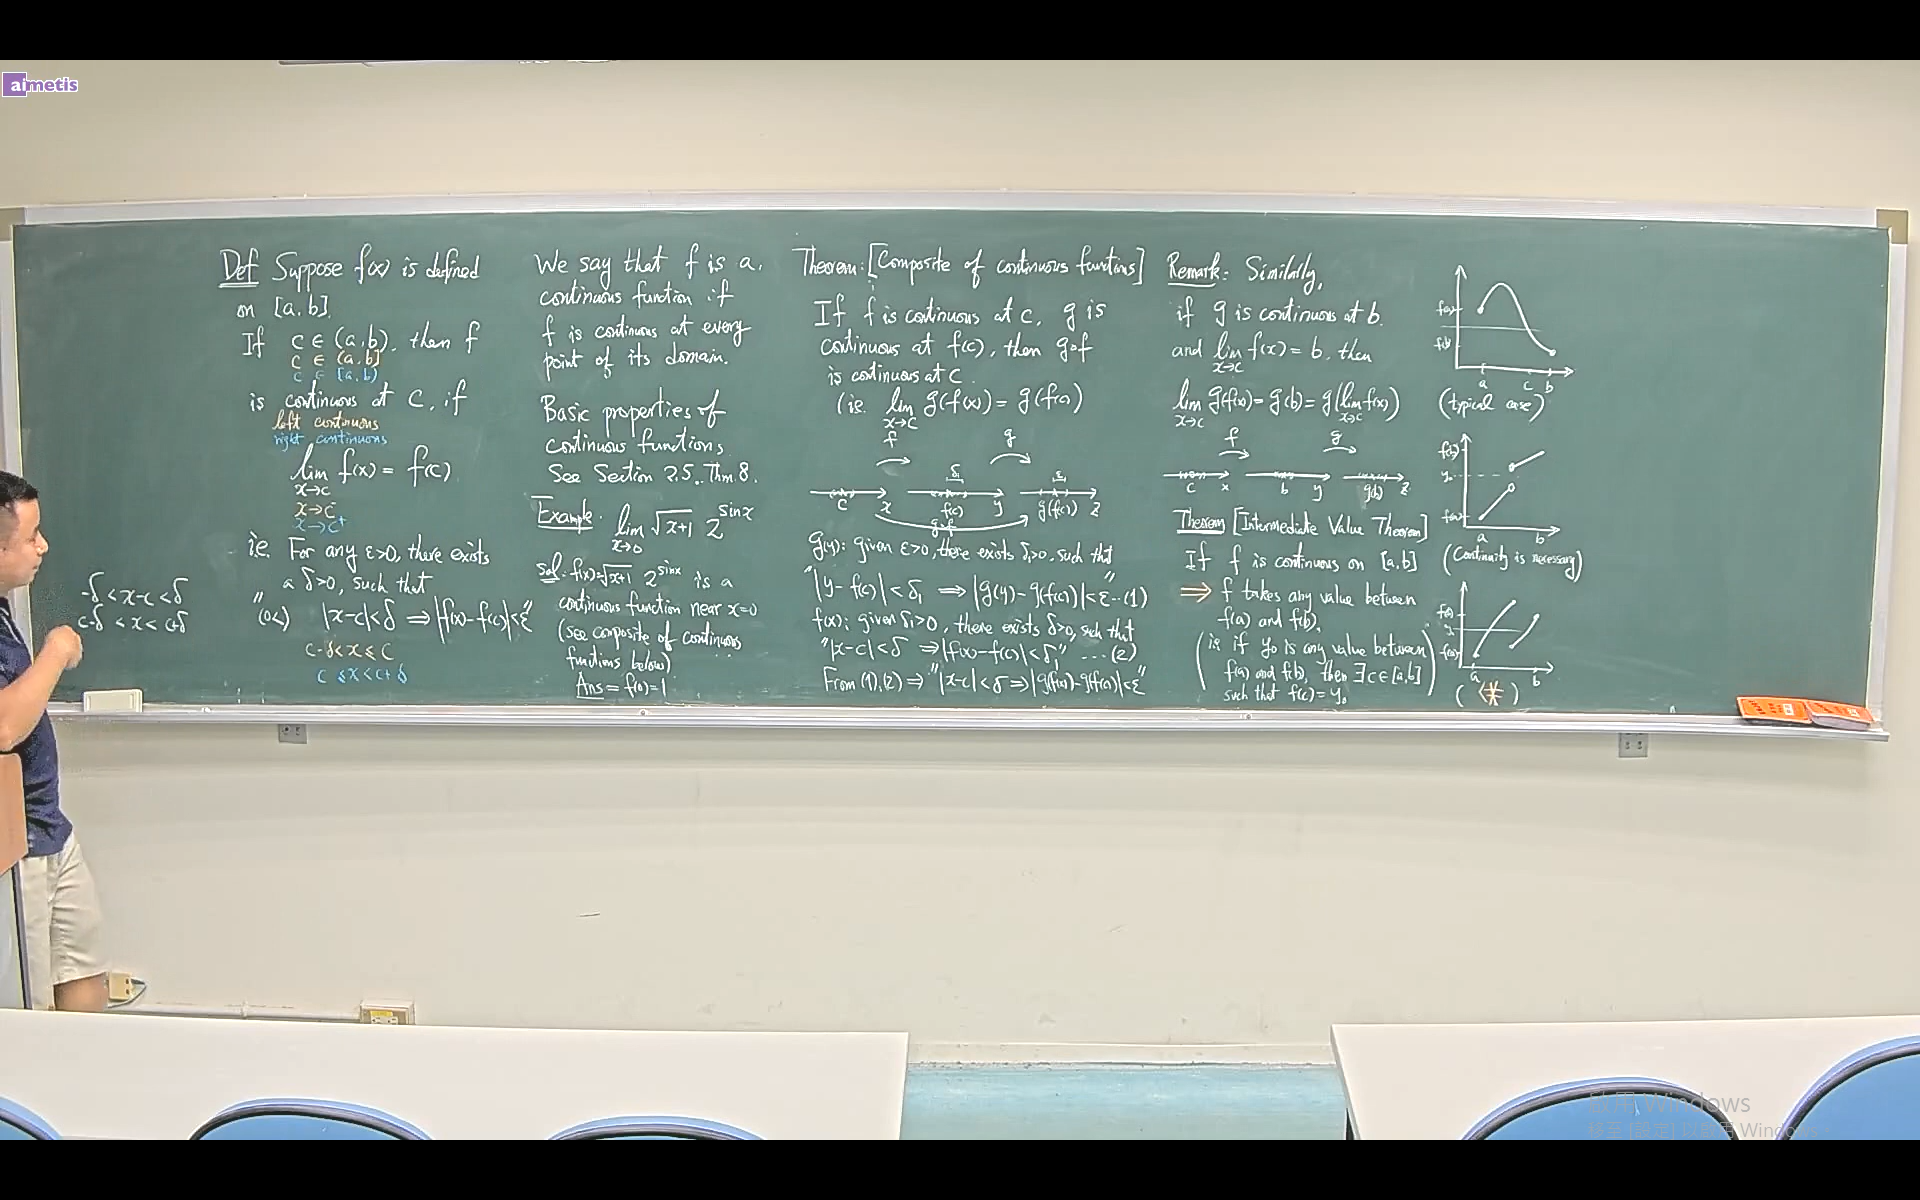 aimetis
Def Suppose f(x) is defined
on [a,b].
If c ∈ (a,b), then f
c ∈ (a,b]
c ∈ [a,b)
is continuous at c, if
left continuous
right continuous
lim f(x) = f(c)
x→c
x→c⁻
x→c⁺
i.e. For any ε>0, there exists
a δ>0, such that
"(0<) |x-c|<δ ⇒ |f(x)-f(c)|<ε"
c-δ<x≤c
c≤x<c+δ
-δ<x-c<δ
c-δ<x<c+δ
We say that f is a
continuous function if
f is continuous at every
point of its domain.
Basic properties of
continuous functions
See Section 2.5. Thm 8.
Example. lim √(x+1) 2^sinx
x→0
sol. f(x)=√(x+1) 2^sinx is a
continuous function near x=0
(see composite of continuous
functions below)
Ans = f(0)=1
Theorem: [Composite of continuous functions]
If f is continuous at c, g is
continuous at f(c), then g∘f
is continuous at c.
(i.e. lim g(f(x)) = g(f(c))
x→c
f g
δ₁ ε
c x f(c) y g(f(c)) z
g∘f
g(y): given ε>0, there exists δ₁>0, such that
"|y-f(c)|<δ₁ ⇒ |g(y)-g(f(c))|<ε" ...(1)
f(x): given δ₁>0, there exists δ>0, such that
"|x-c|<δ ⇒ |f(x)-f(c)|<δ₁" ....(2)
From (1),(2) ⇒ "|x-c|<δ ⇒ |g(f(x))-g(f(c))|<ε"
Remark: Similarly,
if g is continuous at b.
and lim f(x) = b, then
x→c
lim g(f(x)) = g(b) = g(lim f(x))
x→c x→c
f g
c x b y g(b) z
Theorem [Intermediate Value Theorem]
If f is continuous on [a,b]
⇒ f takes any value between
f(a) and f(b).
(i.e. if y₀ is any value between
f(a) and f(b), then ∃c∈[a,b]
such that f(c)=y₀)
f(a)
f(b)
a c b
(typical case)
f(b)
y₀
f(a)
a b
(Continuity is necessary)
a b
(*)
啟用 Windows
移至 [設定] 以啟用 Windows。